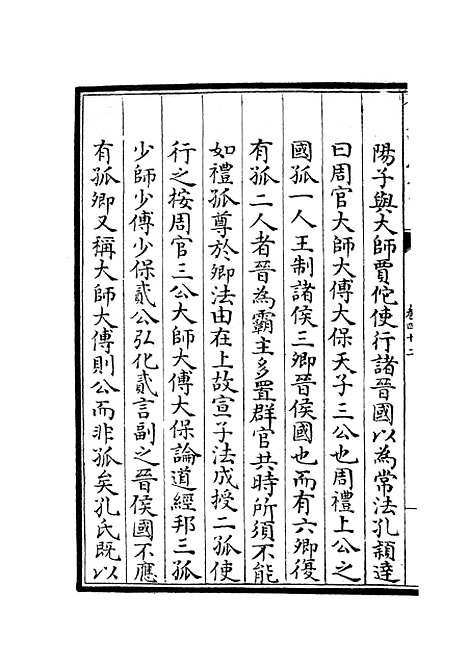 陽子與大師賈佗使行諸晉國以為常法孔頴達
曰周官大師大傅大保天子三公也周禮上公之
國孤一人王制諸侯三卿晉侯國也而有六卿復
有孤二人者晉為霸主多置群官共時所須不能
如禮孤尊於卿法由在上故宣子法成授二孤使
行之按周官三公大師大傅大保論道經邦三孤
少師少傅少保貳公弘化貳言副之晉侯國不應
有孤卿又稱大師大傅則公而非孤矣孔氏既以
卷四十二